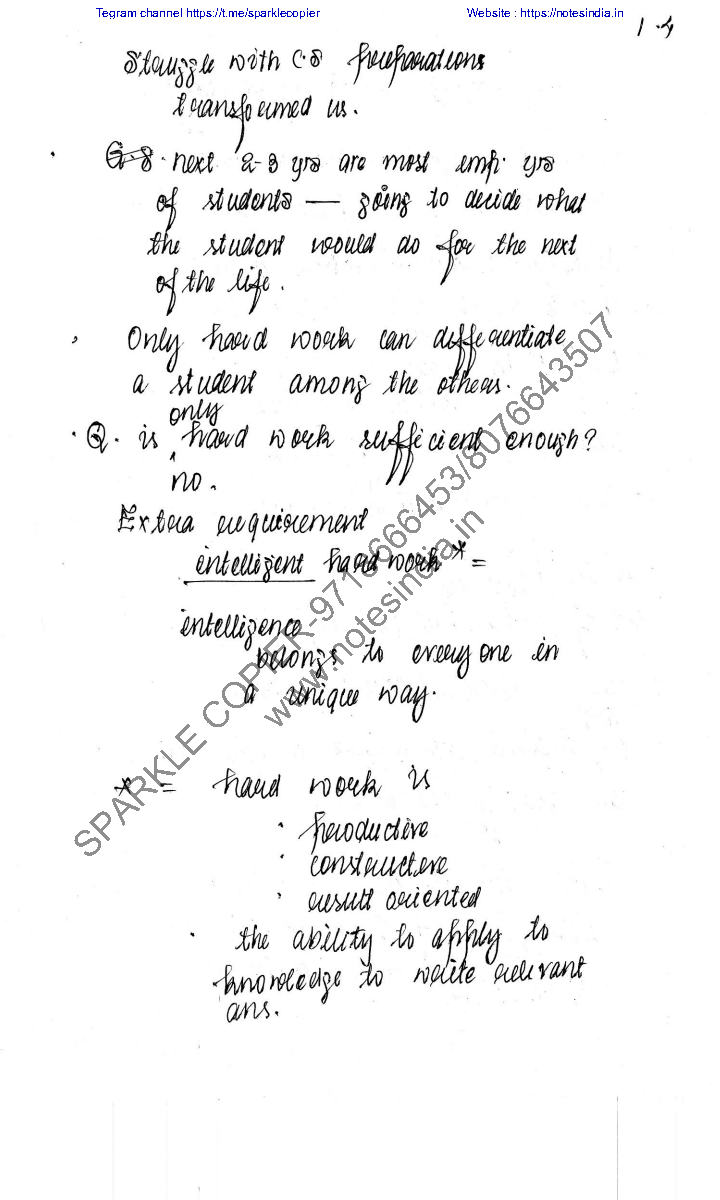 Tegram channel https://t.me/sparklecopier Website : https://notesindia.in
1.4
Struggle with C.S preparations
transformed us.
G.S. next 2-3 yrs are most imp. yrs
of students — going to decide what
the student would do for the next
of the life.
Only hard work can differentiate
a student among the others.
only
Q. is ^ hard work sufficient enough?
no.
Extra requirement
intelligent hard work * =
intelligence
belongs to every one in
a unique way.
* = hard work is
· productive
· constructive
· result oriented
· the ability to apply to
knowledge to write relevant
ans.
SPARKLE COPIER-9713666453/8076643507
www.notesindia.in